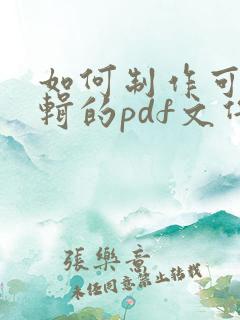 如何制作可
輯的pdf文
張樂意
未经同意禁止转载